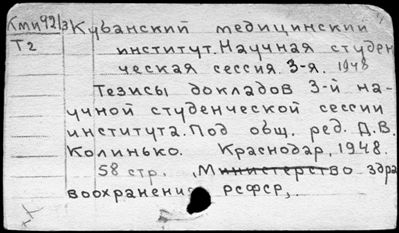 Кми92/3 Кубанский медицинский
Т2 институт. Научная студен
ческая сессия. 3-я. 1948
Тезисы докладов 3-й на-
учной студенческой сессии
института. Под общ. ред. Д.В.
Колинько. Краснодар, 1948.
58 стр. , Министерство здра
воохранения РСФСР,